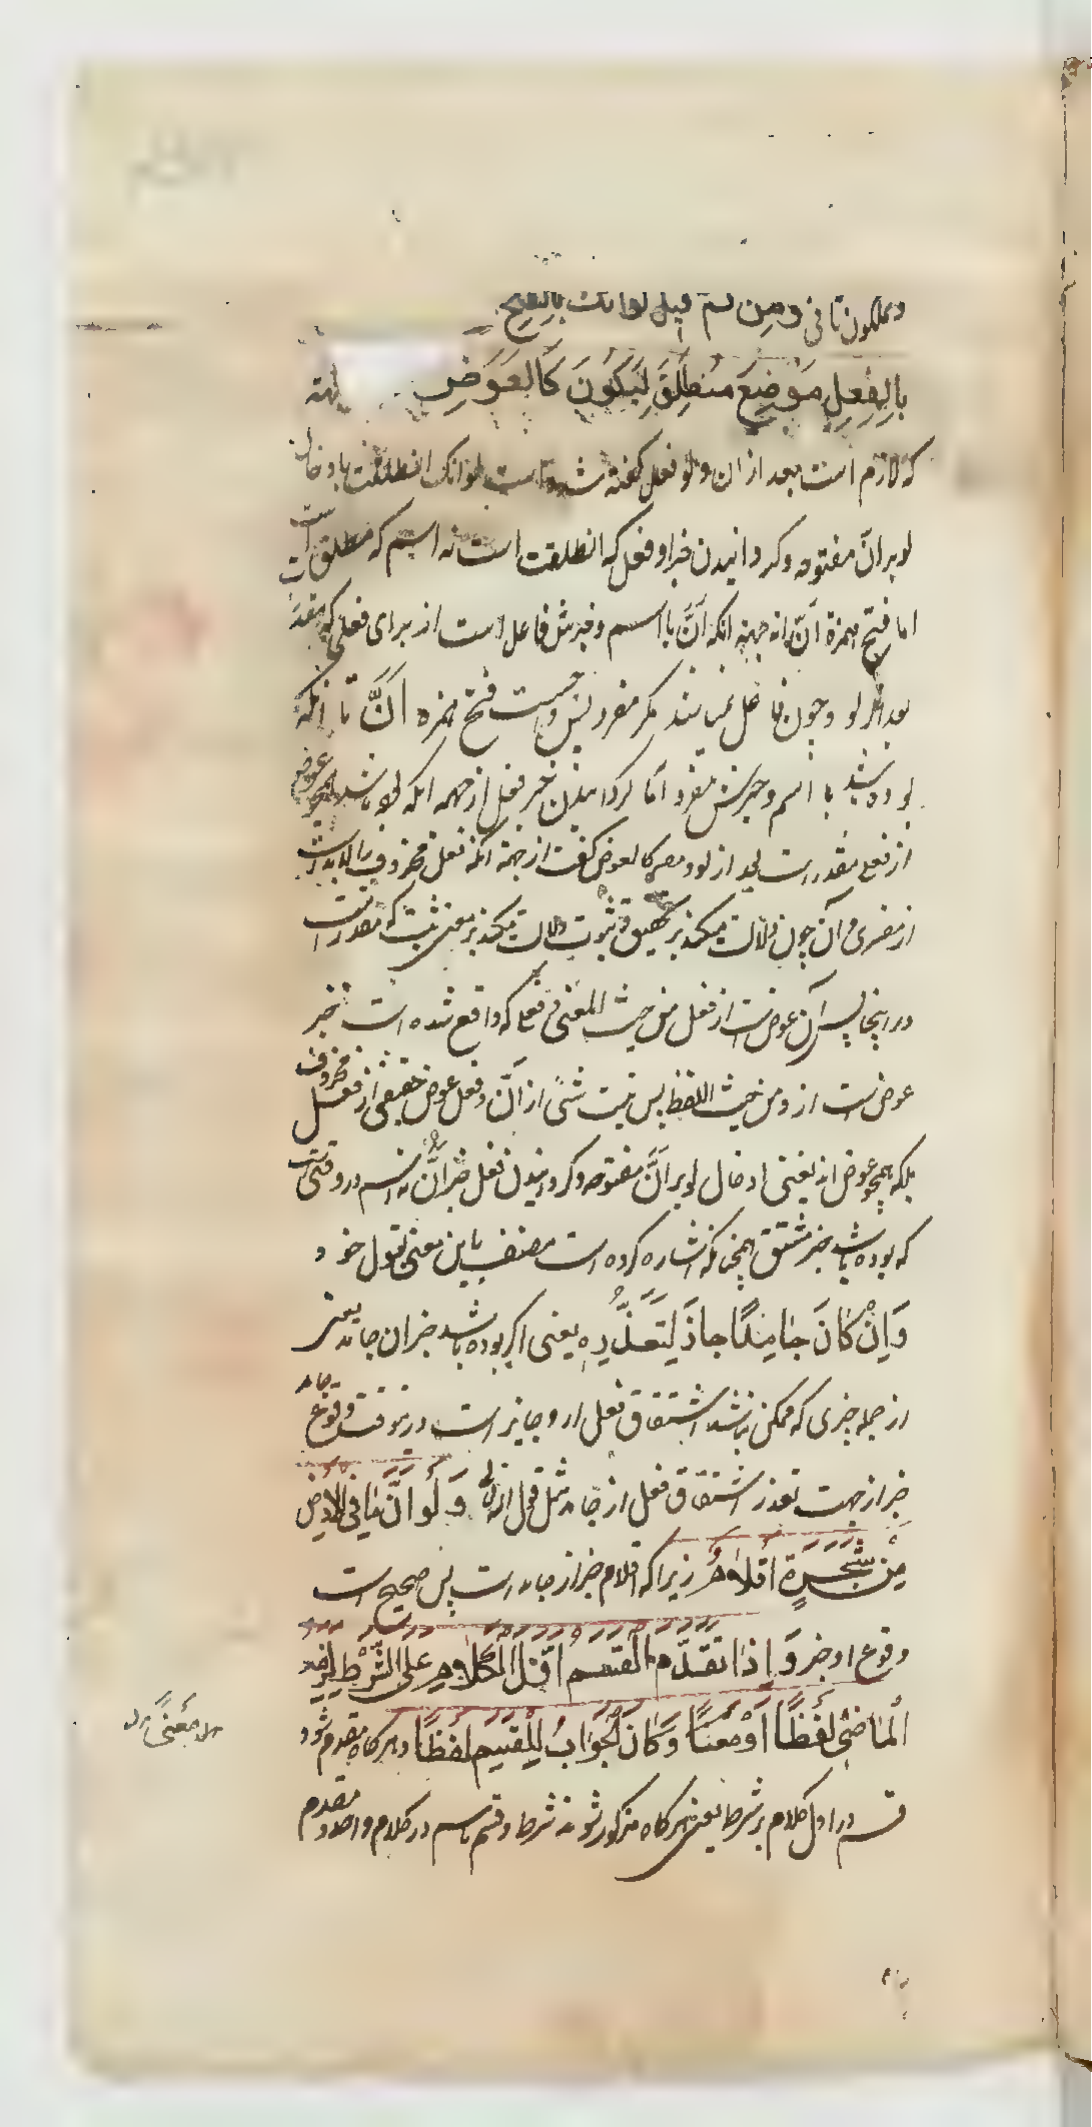 ومن ثم قیل لو انک بالفتح
بِالفِعلِ مَوْضِعَ مُنطَلِقٍ لِیَکُونَ کَالعِوَضِ
که لازم است بعد از ان و لو فعل کفته شده است لو انک انطلقت بادخال
لو بر انّ مفتوحه وکردانیدن خبر او فعل که انطلقت است نه اسم که منطلق است
اما فتح همزة انّ از جهة انکه انَّ با اسم و خبرش فاعل است از برای فعلی که مقدر است
بعد از لو وچون فاعل نمی باشد مکر مفرد پس واجبست فتح همزه انَّ تا انکه
بوده باشد با اسم وخبرش مفرد امّا کردانیدن خبر فعل از جهه انکه تا بوده باشد همچو عوض
از فعل مقدر است بعد از لو ومص کالعوض کفت از جهة انکه فعل محذوف را لابد است
از مفسری و انّ چون دلالت میکند بر تحقیق وثبوت دلالت میکند بر معنی ثبت که مقدر است
در اینجا پس انّ عوض است از فعل من حیث المعنی وفعلی که واقع شده است خبر
عوض است ازو من حیث اللفظ پس نیست شئ از انّ وفعل عوض حقیقی از فعل محذوف
بلکه همچو عوض اند یعنی ادخال لو بر انَّ مفتوحه وکردانیدن فعل خبر انّ نه اسم در وقتی است
که بوده باشد خبر مشتق همچنانکه اشاره کرده است مصنف باین معنی بقول خود
وَاِنْ کَانَ جَامِدًا جازَ لِتَعَذُّرِهِ یعنی اکر بوده باشد خبر ان جامد یعنی
از جمله چیزی که ممکن نباشد اشتقاق فعل ازو جایز است درینوقت وقوع جامد
خبر از جهت تعذر اشتقاق فعل از جامد مثل قول الله تعالی وَلَوْ اَنَّ مَا فِی الاَرْضِ
مِنْ شَجَرَةٍ اَقْلَامٌ زیرا که اقلام خبر از جامد است پس صحیح است
وقوع او خبر وَاِذَا تَقَدَّمَ القَسَمُ اَوَّلَ الکَلَامِ عَلَی الشَّرْطِ لَزِمَهُ
اَلمَاضِی لَفْظًا اَوْ مَعْنًا وَکَانَ الجَوَابُ لِلْقَسَمِ لَفْظًا وهرکاه مقدم شود
قسم در اول کلام بر شرط یعنی هرکاه مذکور شوند شرط وقسم باهم در کلام واحد ومقدم